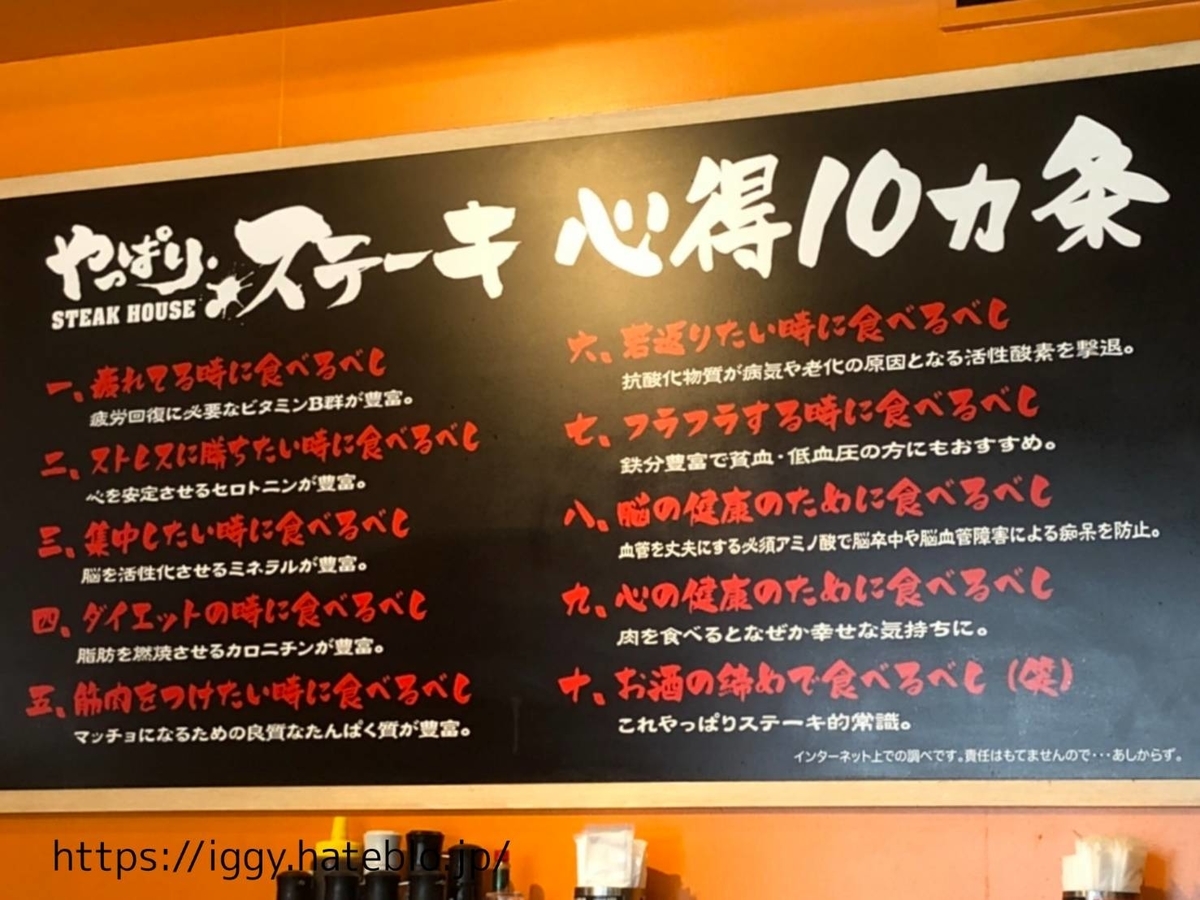 やっぱりステーキ 心得10カ条
STEAK HOUSE
一、疲れてる時に食べるべし
疲労回復に必要なビタミンB群が豊富。
二、ストレスに勝ちたい時に食べるべし
心を安定させるセロトニンが豊富。
三、集中したい時に食べるべし
脳を活性化させるミネラルが豊富。
四、ダイエットの時に食べるべし
脂肪を燃焼させるカロニチンが豊富。
五、筋肉をつけたい時に食べるべし
マッチョになるための良質なたんぱく質が豊富。
六、若返りたい時に食べるべし
抗酸化物質が病気や老化の原因となる活性酸素を撃退。
七、フラフラする時に食べるべし
鉄分豊富で貧血・低血圧の方にもおすすめ。
八、脳の健康のために食べるべし
血管を丈夫にする必須アミノ酸で脳卒中や脳血管障害による痴呆を防止。
九、心の健康のために食べるべし
肉を食べるとなぜか幸せな気持ちに。
十、お酒の締めで食べるべし(笑)
これやっぱりステーキ的常識。
インターネット上での調べです。責任はもてませんので・・・あしからず。
https://iggy.hateblo.jp/